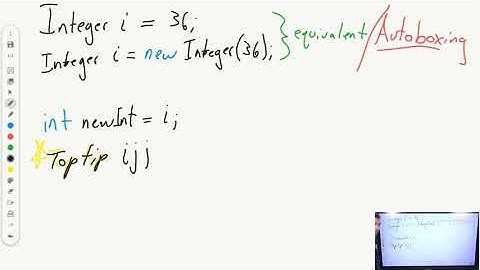 Integer i = 36;
Integer i = new Integer(36); } equivalent / Autoboxing
int newInt = i;
Top tip ijj